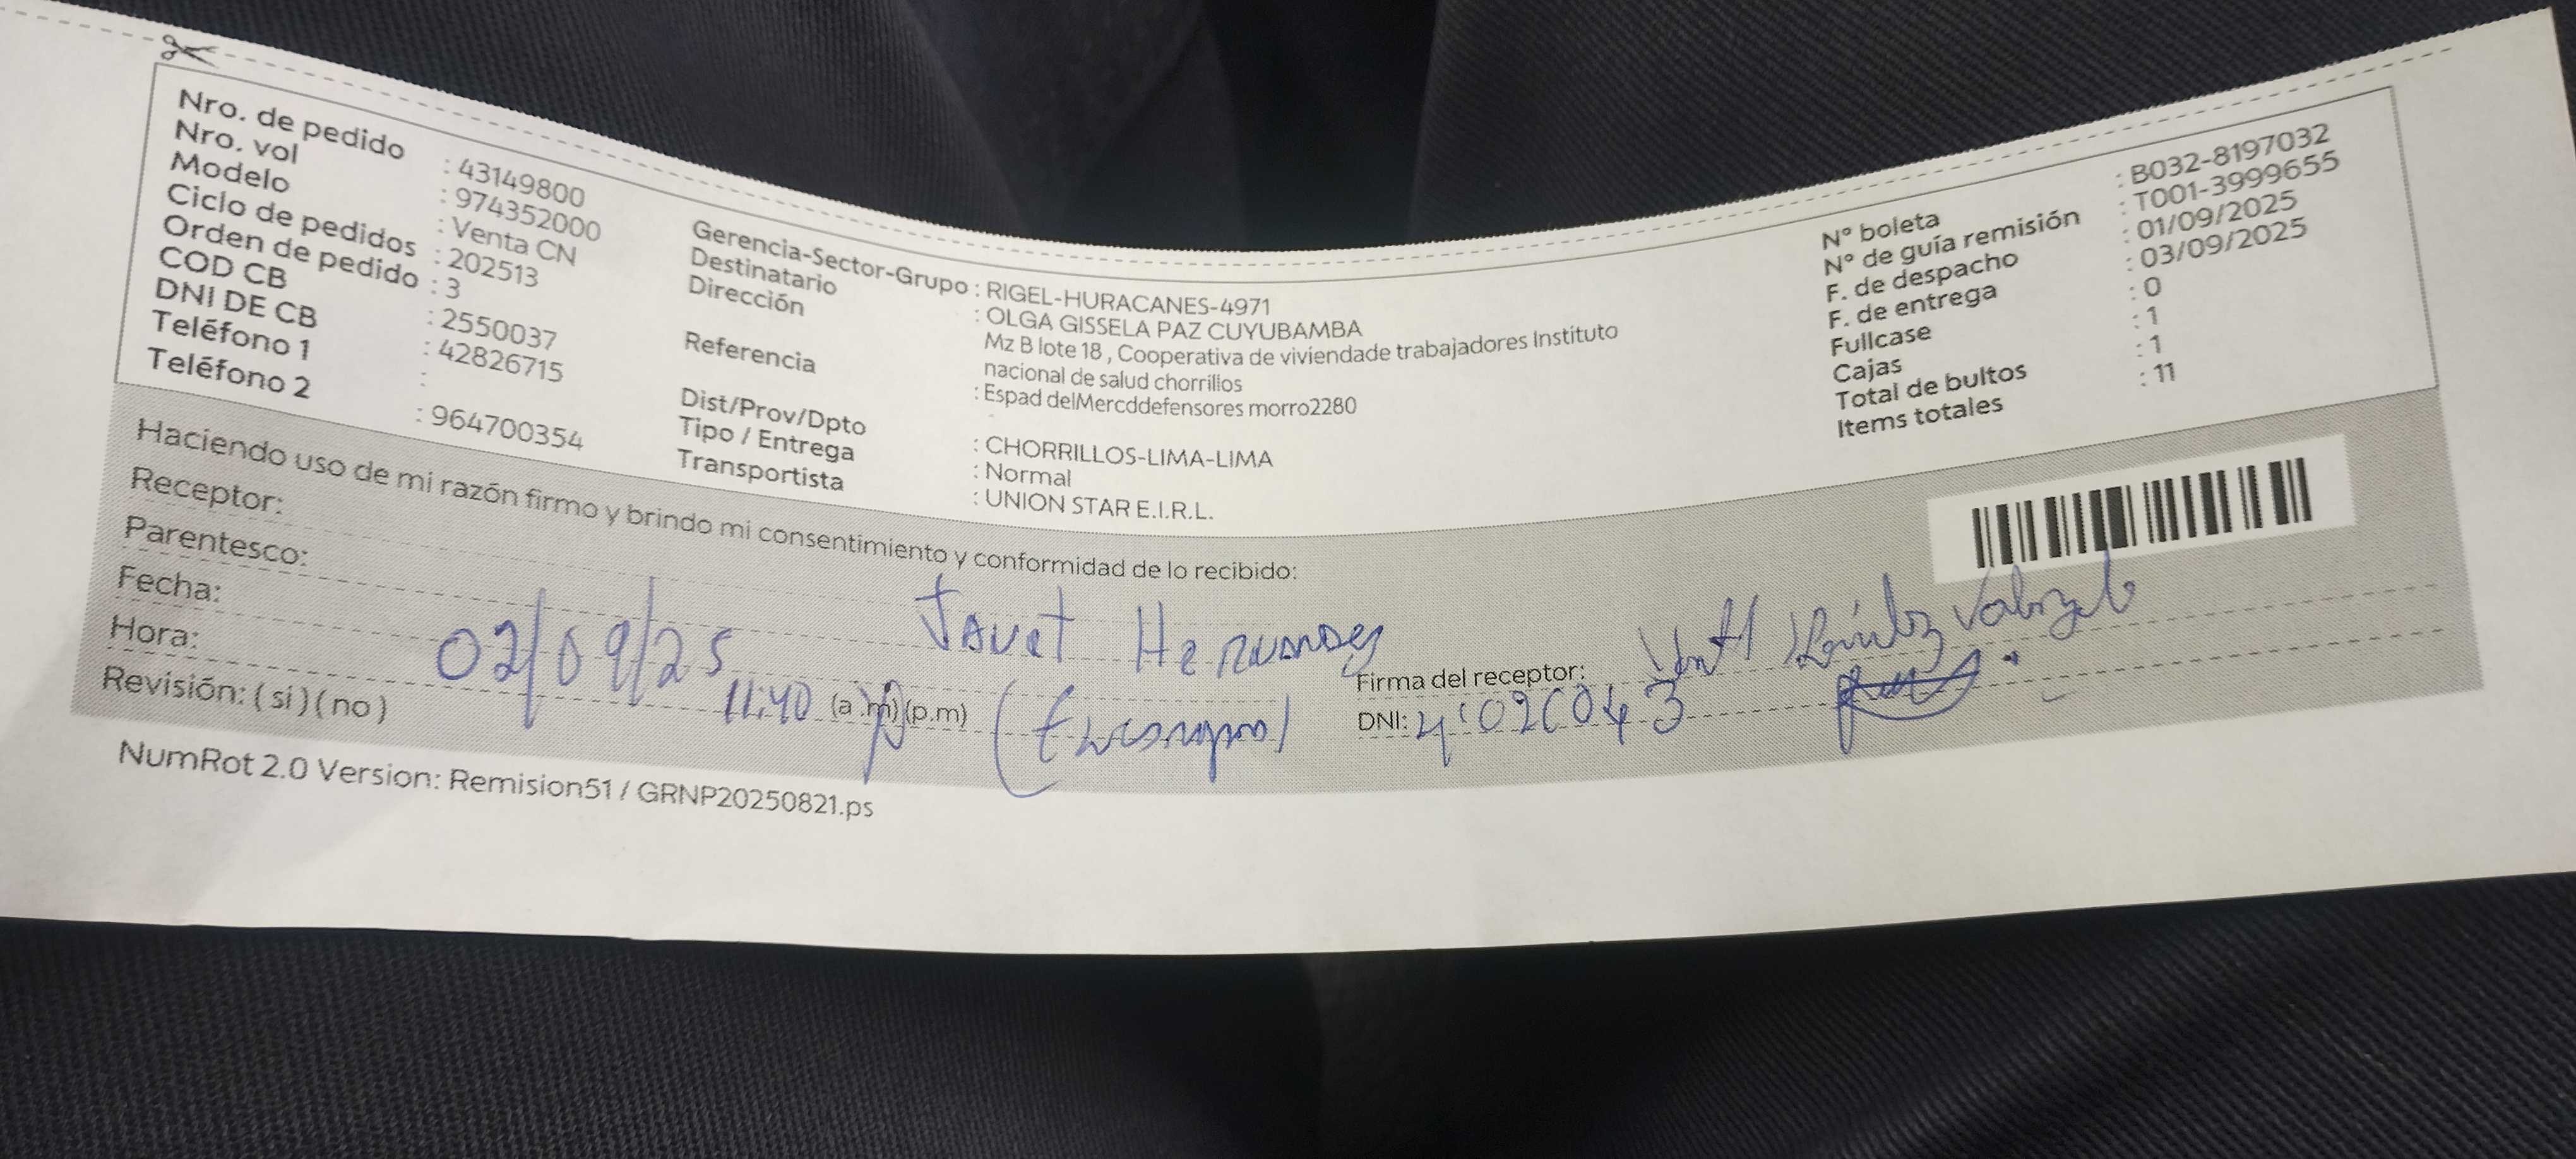 Nro. de pedido : 43149800
Nro. vol : 974352000
Modelo : Venta CN
Ciclo de pedidos : 202513
Orden de pedido : 3
COD CB : 2550037
DNI DE CB : 42826715
Teléfono 1 :
Teléfono 2 : 964700354
Gerencia-Sector-Grupo : RIGEL-HURACANES-4971
Destinatario : OLGA GISSELA PAZ CUYUBAMBA
Dirección : Mz B lote 18 , Cooperativa de viviendade trabajadores Instituto
nacional de salud chorrillos
Referencia : Espad delMercddefensores morro2280
Dist/Prov/Dpto : CHORRILLOS-LIMA-LIMA
Tipo / Entrega : Normal
Transportista : UNION STAR E.I.R.L.
N° boleta : B032-8197032
N° de guía remisión : T001-3999655
F. de despacho : 01/09/2025
F. de entrega : 03/09/2025
Fullcase : 0
Cajas : 1
Total de bultos : 1
Items totales : 11
Haciendo uso de mi razón firmo y brindo mi consentimiento y conformidad de lo recibido:
Receptor:
Parentesco:
Fecha: 02/09/25
Hora: 11:40 (a.m) (p.m)
Revisión: ( si ) ( no )
Firma del receptor:
DNI:
NumRot 2.0 Version: Remision51 / GRNP20250821.ps